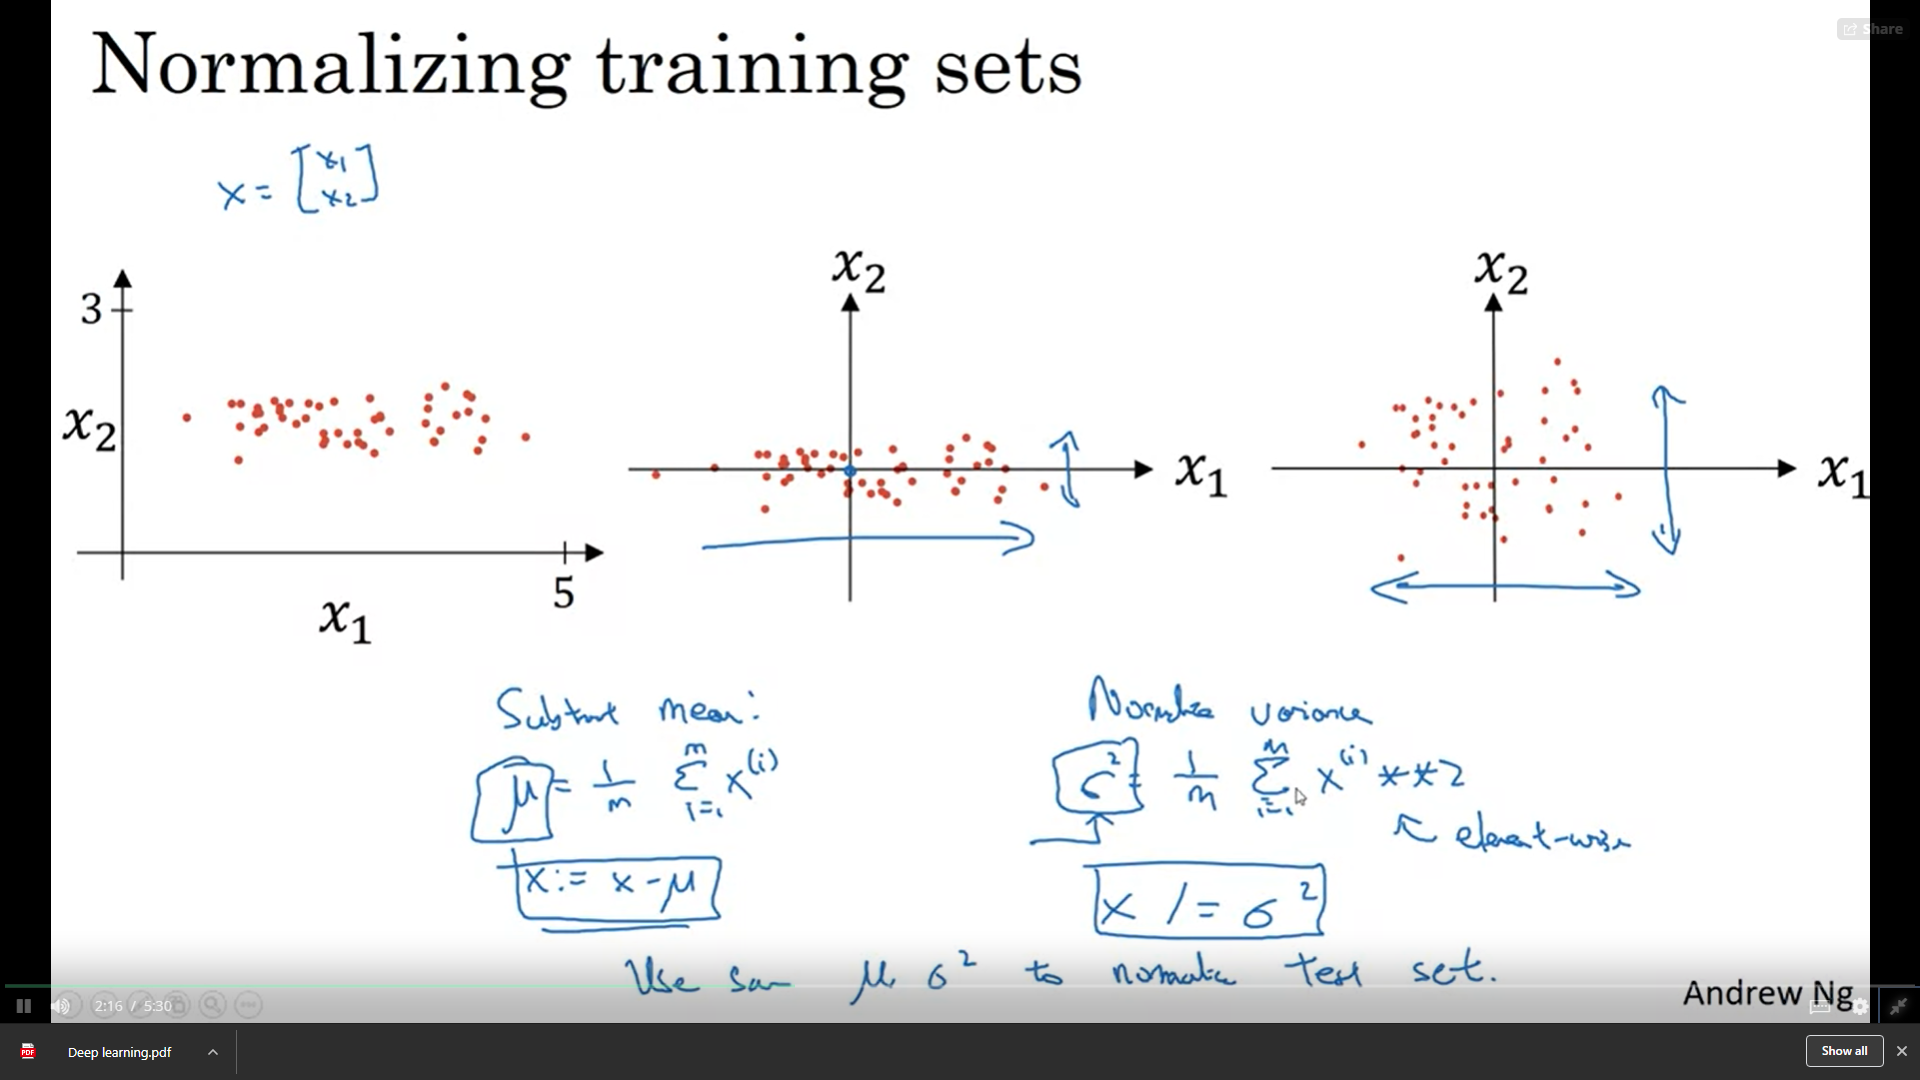 Share
Normalizing training sets
x = [x1 x2]
x2
x2
3
x2
x1
x1
5
x1
Subtract mean:
μ = 1/m Σ i=1 m x(i)
x := x - μ
Normalize variance
σ² = 1/m Σ i=1 m x(i) **2
element-wise
x /= σ²
Use same μ, σ² to normalize test set.
Andrew Ng
2:16 / 5:30
PDF
Deep learning.pdf
Show all